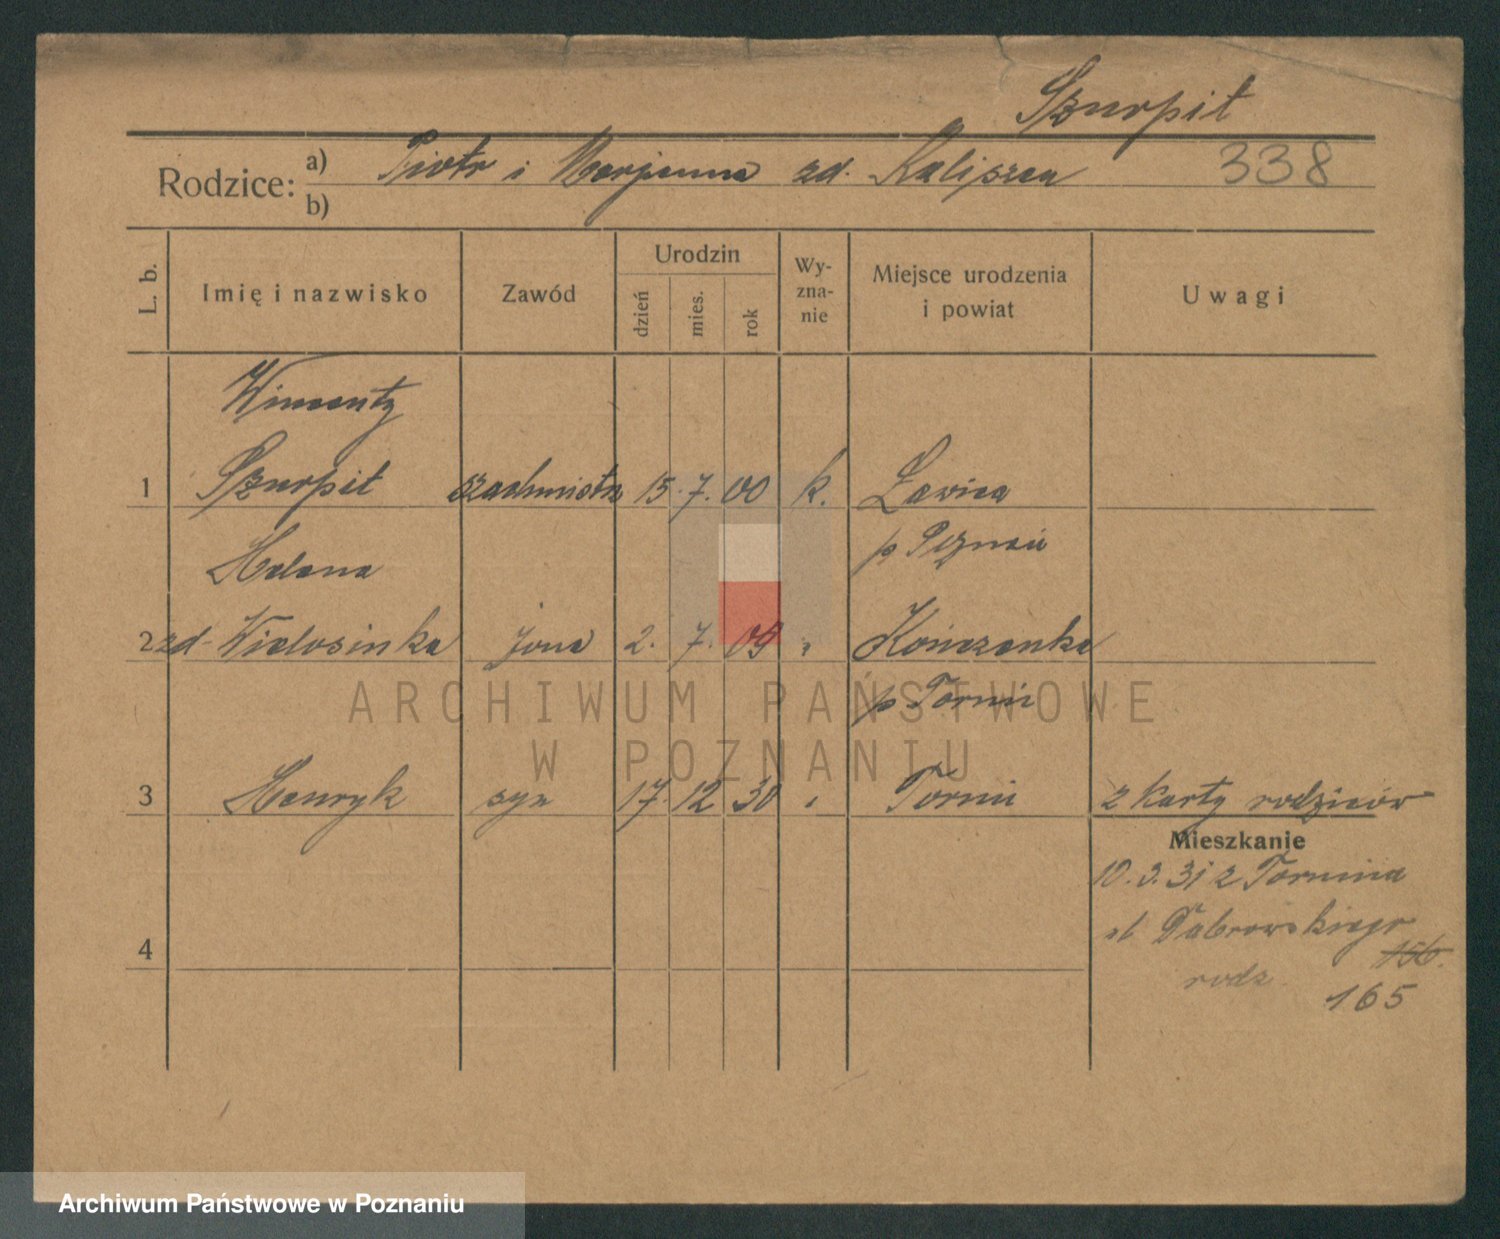 Szurpit
Rodzice: a) Piotr i Marjanna zd. Kaliszan 338
b)
L. b. Imię i nazwisko Zawód Urodzin dzień mies. rok Wy-zna-nie Miejsce urodzenia i powiat Uwagi
Wincenty
1 Szurpit szachmistrz 15. 7. 00 k. Ławica
p Poznań
Helena
2 zd. Wielosinka żona 2. 7. 09 " Kończanka
p Toruń
3 Henryk syn 17. 12 30 " Toruń z karty rodziców
Mieszkanie
10.3.31 z Torunia
ul Dąbrowskiego
156.
rodz 165
4
ARCHIWUM PAŃSTWOWE
W POZNANIU
Archiwum Państwowe w Poznaniu